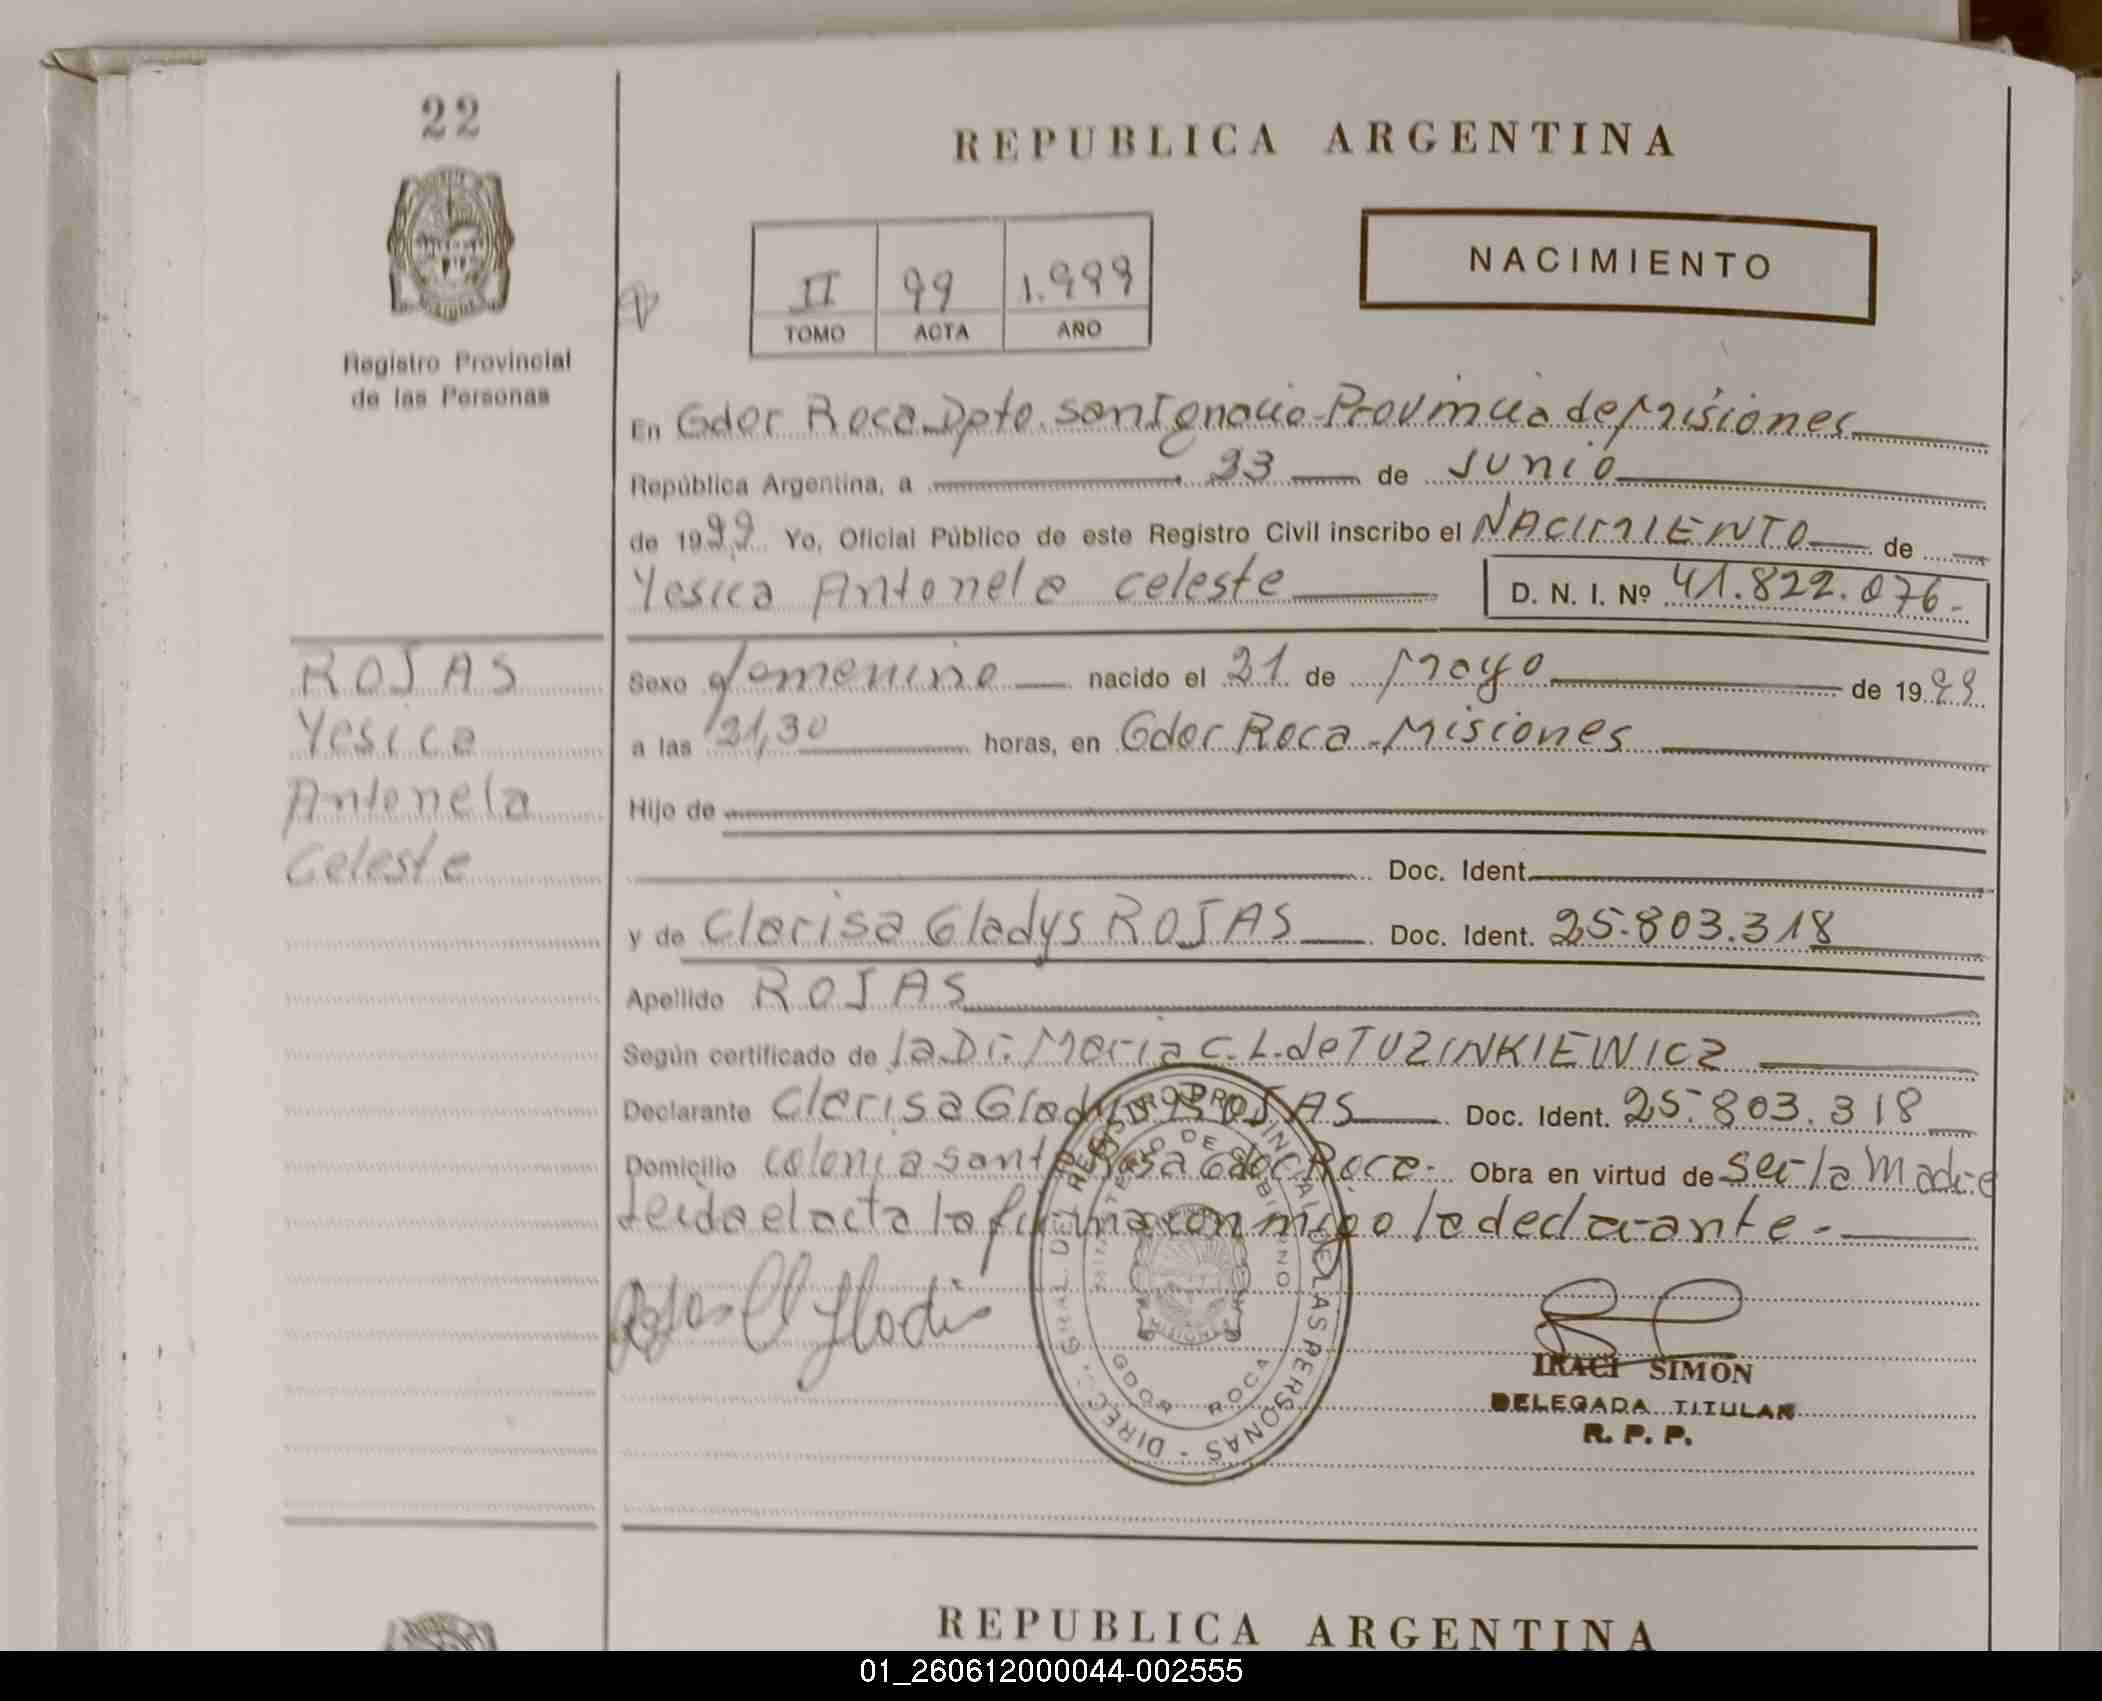 22
REPUBLICA ARGENTINA
NACIMIENTO
II 99 1.999
TOMO ACTA AÑO
Registro Provincial
de las Personas
En Gdor Roca Dpto. San Ignacio - Provincia de Misiones
República Argentina, a 23 de Junio
de 1999 Yo, Oficial Público de este Registro Civil inscribo el NACIMIENTO de
Yesica Antonela Celeste D. N. I. Nº 41.822.076.-
ROJAS
Yesica
Antonela
Celeste
Sexo femenino nacido el 21 de Mayo de 1999
a las 21,30 horas, en Gdor Roca - Misiones
Hijo de
Doc. Ident.
y de Clarisa Gladys ROJAS Doc. Ident. 25.803.318
Apellido ROJAS
Según certificado de la Dr. Maria C. L. de TUZINKIEWICZ
Declarante Clarisa Gladys ROJAS Doc. Ident. 25.803.318
Domicilio Colonia Santa Rosa Gdor Roca.- Obra en virtud de ser la Madre
Leida el acta la firma con migo la declarante.-
DIRECC. GRAL. DEL REGISTRO PROVINCIAL DE LAS PERSONAS -
MINISTERIO DE GOBIERNO
MISIONES
GDOR ROCA
IRACI SIMON
DELEGADA TITULAR
R. P. P.
REPUBLICA ARGENTINA
01_260612000044-002555